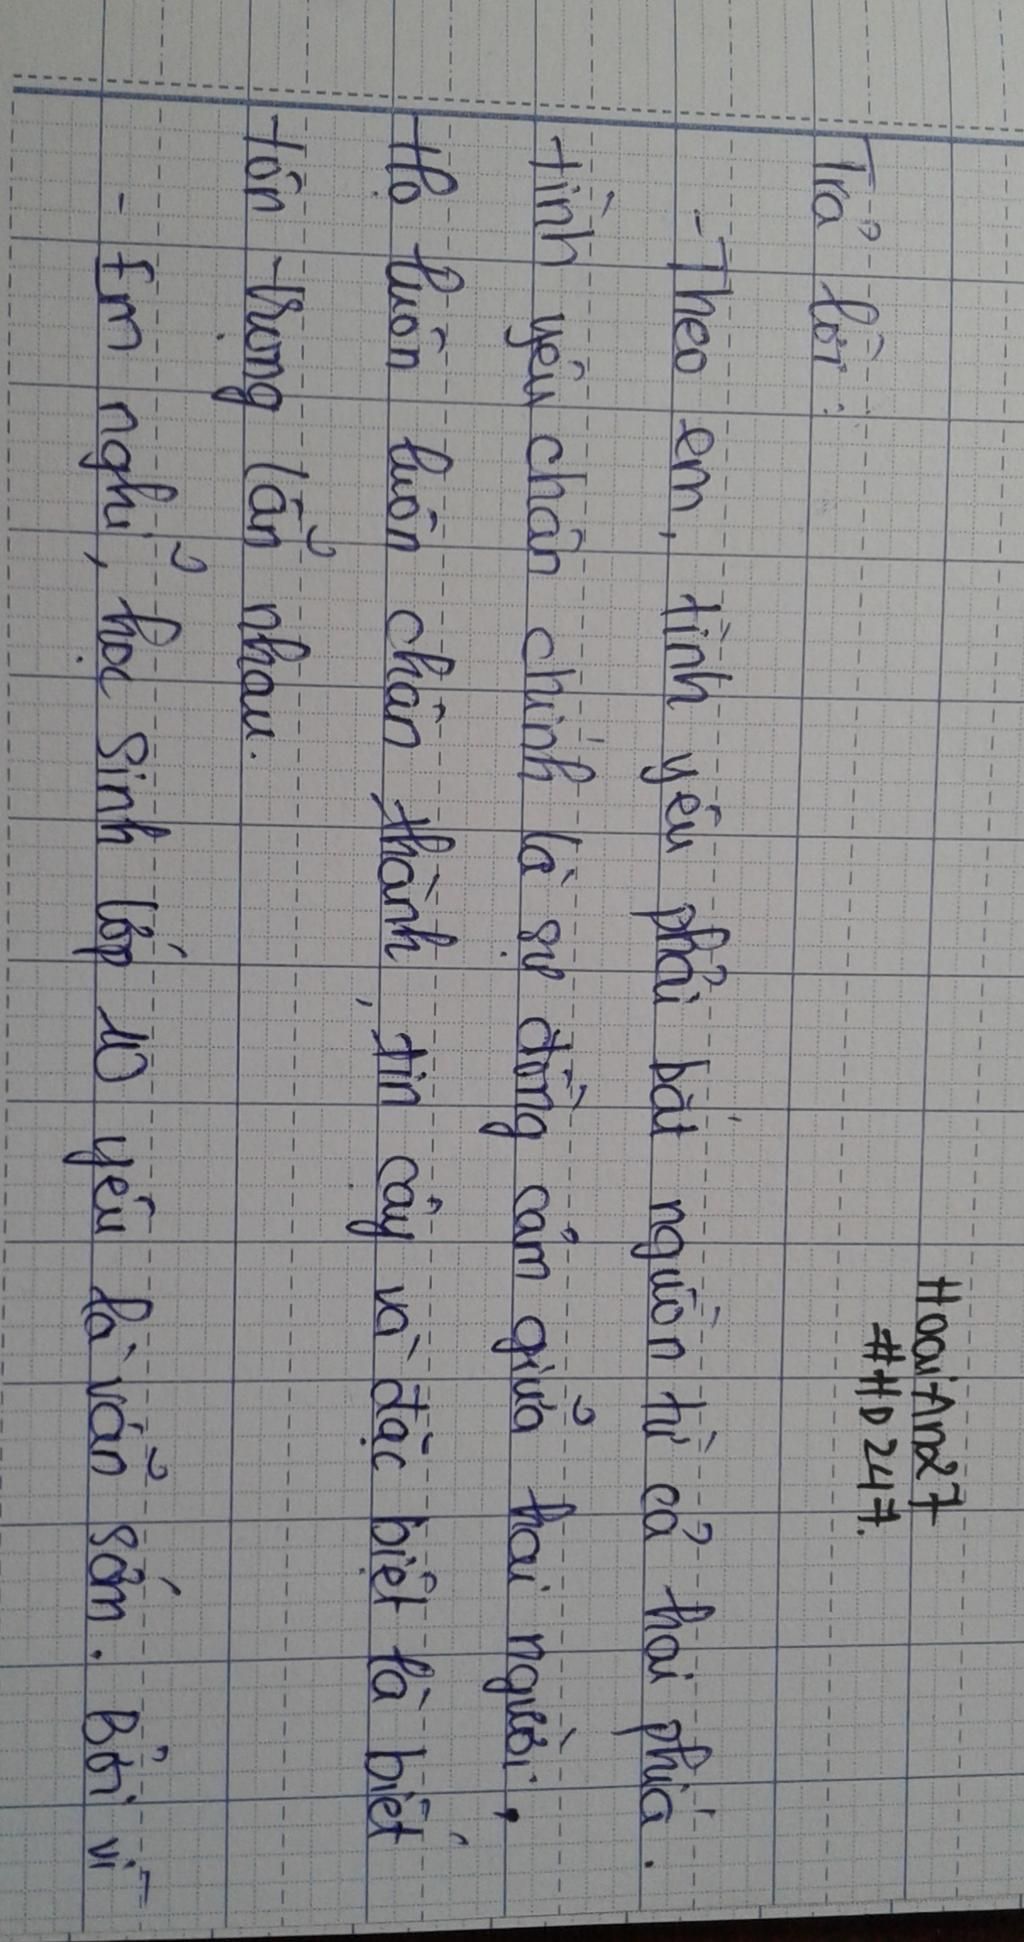 HoaiAn27
#HD247.
Trả lời:
- Theo em, tình yêu phải bắt nguồn từ cả hai phía.
tình yêu chân chính là sự đồng cảm giữa hai người,
họ luôn luôn chân thành, tin cậy và đặc biệt là biết
tôn trọng lẫn nhau.
- Em nghĩ, học sinh lớp 10 yêu là vẫn sớm. Bởi vì